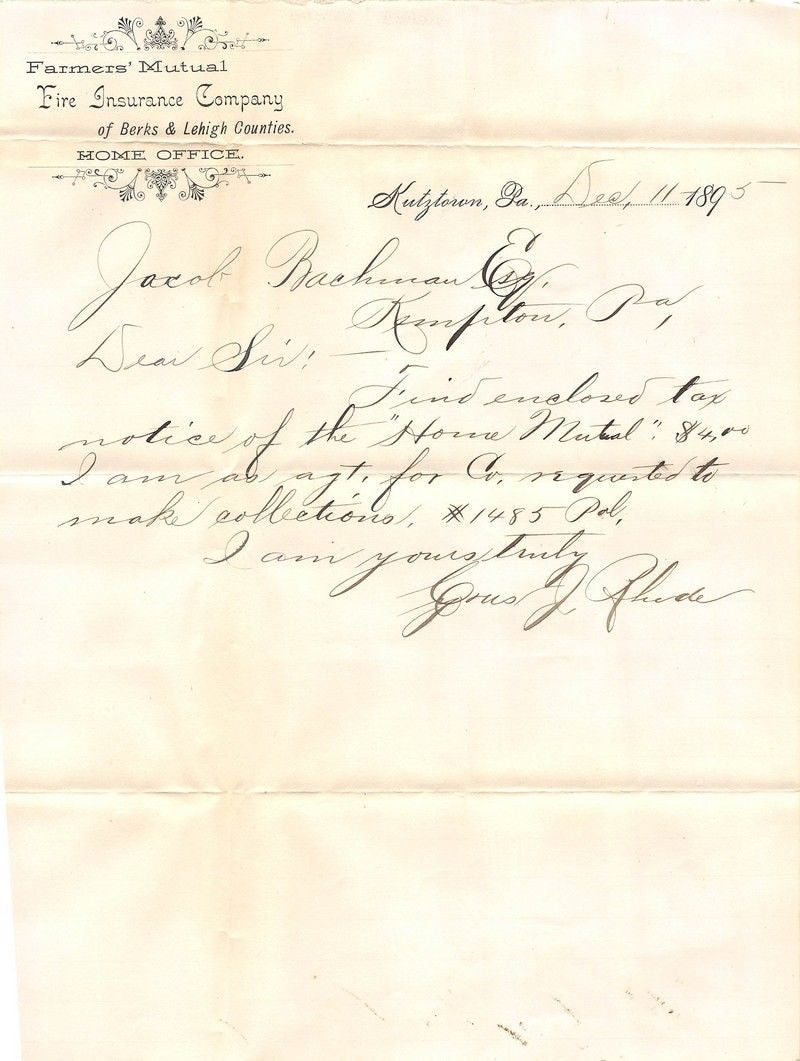 Farmers' Mutual
Fire Insurance Company
of Berks & Lehigh Counties.
HOME OFFICE.
Kutztown, Pa., Dec, 11 1895
Jacob Bachman Esq,
Kempton, Pa,
Dear Sir: —
Find enclosed tax
notice of the "Home Mutual". $4,00
I am as agt. for Co, requested to
make collections, #1485 Pol,
I am yours truly
J. Rhode